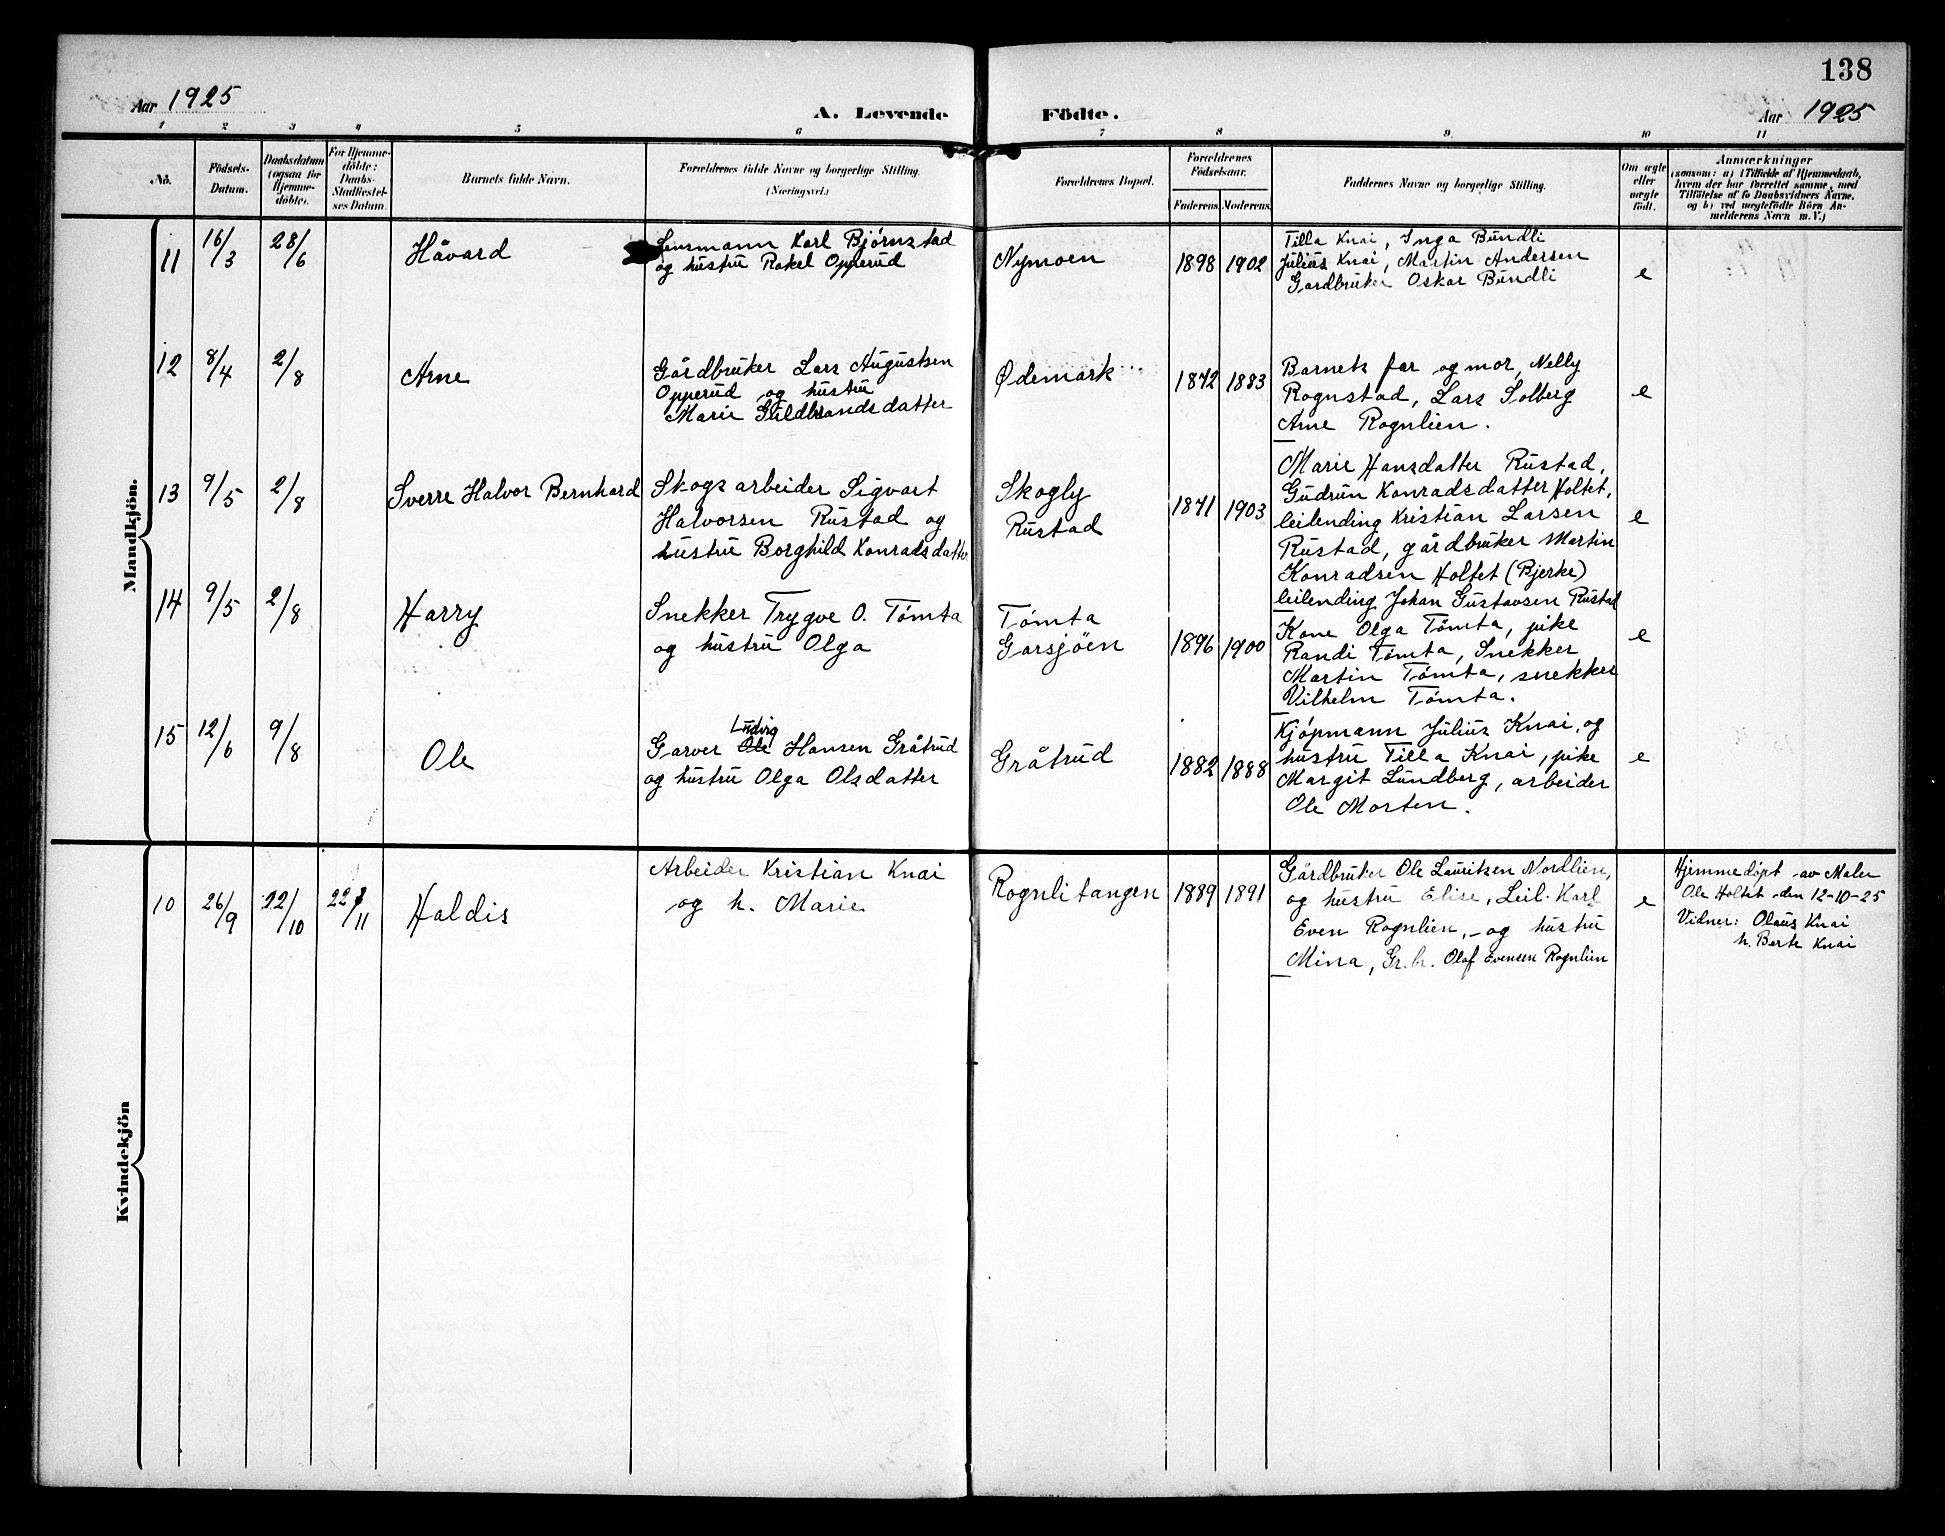 138
Aar 1925
A. Levende Födte.
Aar 1925
1 2 3 4 5 6 7 8 9. 10 11
No.
Födsels-
Datum.
Daabsdatum
(ogsaa for
Hjemme-
döbte).
For Hjemme-
döbte:
Daabs-
Stadfæstel-
ses Datum.
Barnets fulde Navn.
Forældrenes fulde Navne og borgerlige Stilling.
(Næringsvei.)
Forældrenes Bopæl.
Forældrenes
Födselsaar.
Faderens. Moderens.
Faddernes Navne og borgerlige Stilling.
Om ægte
eller
uægte
födt.
Anmærkninger
(saasom: a) i Tilfælde af Hjemmedaab,
hvem der har forrettet samme, med
Tilföielse af to Daabsvidners Navne.
og b) ved uægtefödte Börn An-
melderens Navn m. V.)
Mandkjön.
11 16/3 28/6 Håvard
Lensmann Karl Bjørnstad
og hustru Rakel Opperud
Nymoen 1898 1902
Tilla Knai, Inga Bundli
Julius Knai, Martin Andersen
Gardbruker Oskar Bundli
e
12 8/4 2/8 Arne
Gårdbruker Lars Augustsen
Opperud og hustru
Marie Guldbrandsdatter
Ødemark 1872 1883
Barnets far og mor, Nelly
Rognstad, Lars Solberg
Arne Rognlien.
e
13 9/5 2/8 Sverre Halvor Bernhard
Skogsarbeider Sigvart
Halvorsen Rustad og
hustru Borghild Konradsdatter
Skogly
Rustad
1871 1903
Marie Hansdatter Rustad,
Gudrun Konradsdatter Holtet,
leilending Kristian Larsen
Rustad, gårdbruker Martin
Konradsen Holtet (Bjerke)
leilending Johan Gustavsen Rustad
e
14 9/5 2/8 Harry
Snekker Trygve O. Tømta
og hustru Olga
Tømta
Garsjøen
1896 1900
Kone Olga Tømta, pike
Randi Tømta, Snekker
Martin Tømta, snekker
Vilhelm Tømta.
e
15 12/6 9/8 Ole
Ludvig
Garver Ole Hansen Gråtrud
og hustru Olga Olsdatter
Gråtrud 1882 1888
Kjøpmann Julius Knai, og
hustru Tilla Knai, pike
Margit Lundberg, arbeider
Ole Morten.
e
Kvindekjön
10 26/9 22/10 22/11 Haldis
Arbeider Kristian Knai
og h. Marie
Rognlitangen 1889 1891
Gårdbruker Ole Lauritsen Nordlien,
og hustru Elise, Leil. Karl
Even Rognlien, og hustru
Mina, Gr.br. Olaf Evensen Rognlien
e
Hjemmedøpt av Maler
Ole Holtet den 12-10-25
Vidner: Olaus Knai
h. Berte Knai